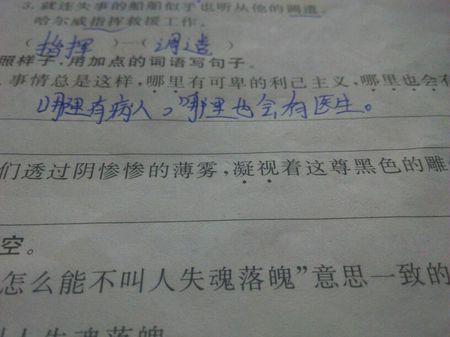 3. 就连失事的船舶似乎也听从他的调遣。
哈尔威指挥救援工作。
(指挥)—(调遣)
照样子,用加点的词语写句子。
事情总是这样,哪里有可卑的利己主义,哪里也会有
哪里有病人,哪里也会有医生。
们透过阴惨惨的薄雾,凝视着这尊黑色的雕
空。
怎么能不叫人失魂落魄”意思一致的
叫人失魂落魄